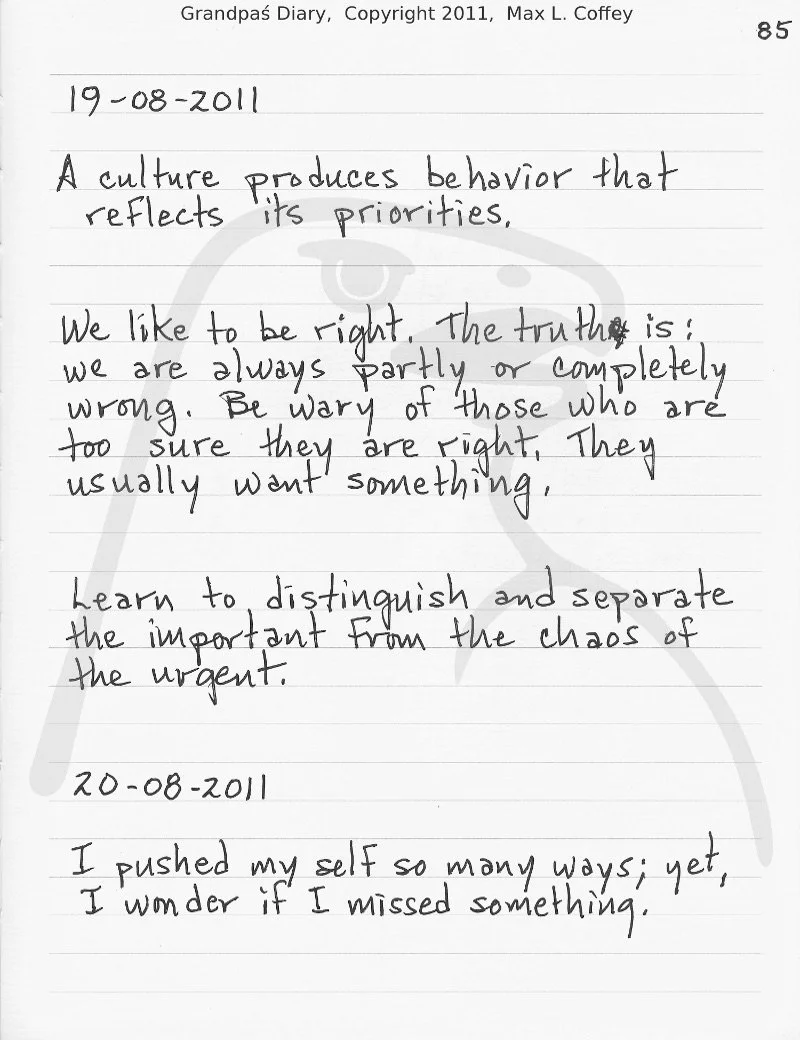 Grandpaś Diary, Copyright 2011, Max L. Coffey
85
19-08-2011
A culture produces behavior that
reflects its priorities.
We like to be right. The truth is:
we are always partly or completely
wrong. Be wary of those who are
too sure they are right. They
usually want something.
Learn to distinguish and separate
the important from the chaos of
the urgent.
20-08-2011
I pushed my self so many ways; yet,
I wonder if I missed something.